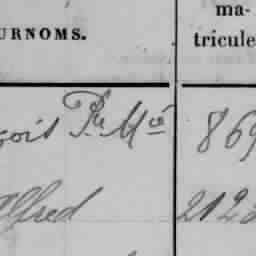 URNOMS.
ma-
tricule
çois Pre Mie 869
Alfred 212